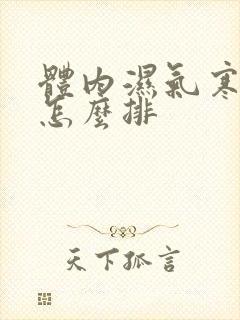 體內濕氣寒
怎麼排
天下孤言